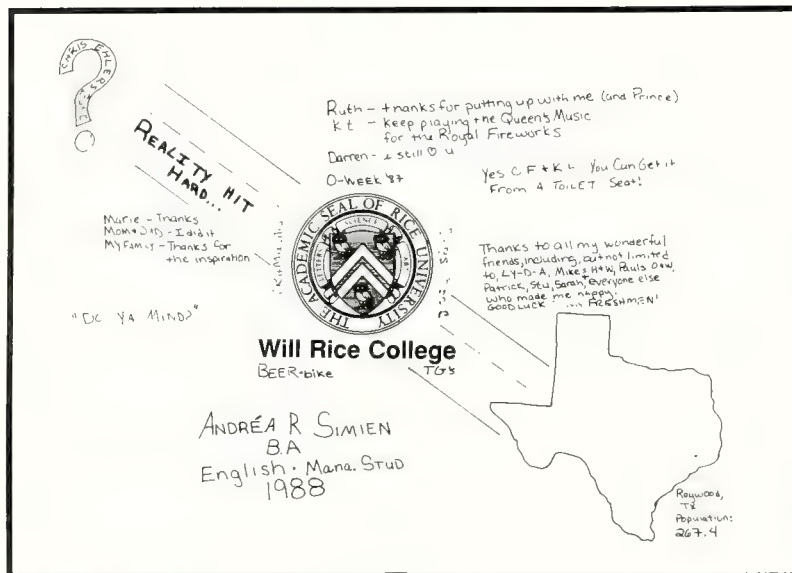 CHRIS EHLERS
REALITY HIT
HARD...
Ruth - thanks for putting up with me (and Prince)
Kt - Keep playing the Queen's Music
for the Royal Fireworks
Darren - I still ♡ u
O-WEEK '87
Yes C F + K L You Can Get it
From A TOILET Seat!
Marie - Thanks
Mom + DAD - I did it
My Family - Thanks for
the inspiration
THE ACADEMIC SEAL OF RICE UNIVERSITY
LETTERS SCIENCE ART
Thanks to all my wonderful
friends, including, but not limited
to, LY-D-A, Mikes H+W, Pauls O+W,
Patrick, Stu, Sarah, everyone else
who made me happy.
GOOD LUCK .... FRESHMEN!
"DO YA MIND?"
Will Rice College
BEER-bike TG's
ANDRÉA R SIMIEN
B.A
English . Mana. STUD
1988
Raywood,
TX
Population:
267.4